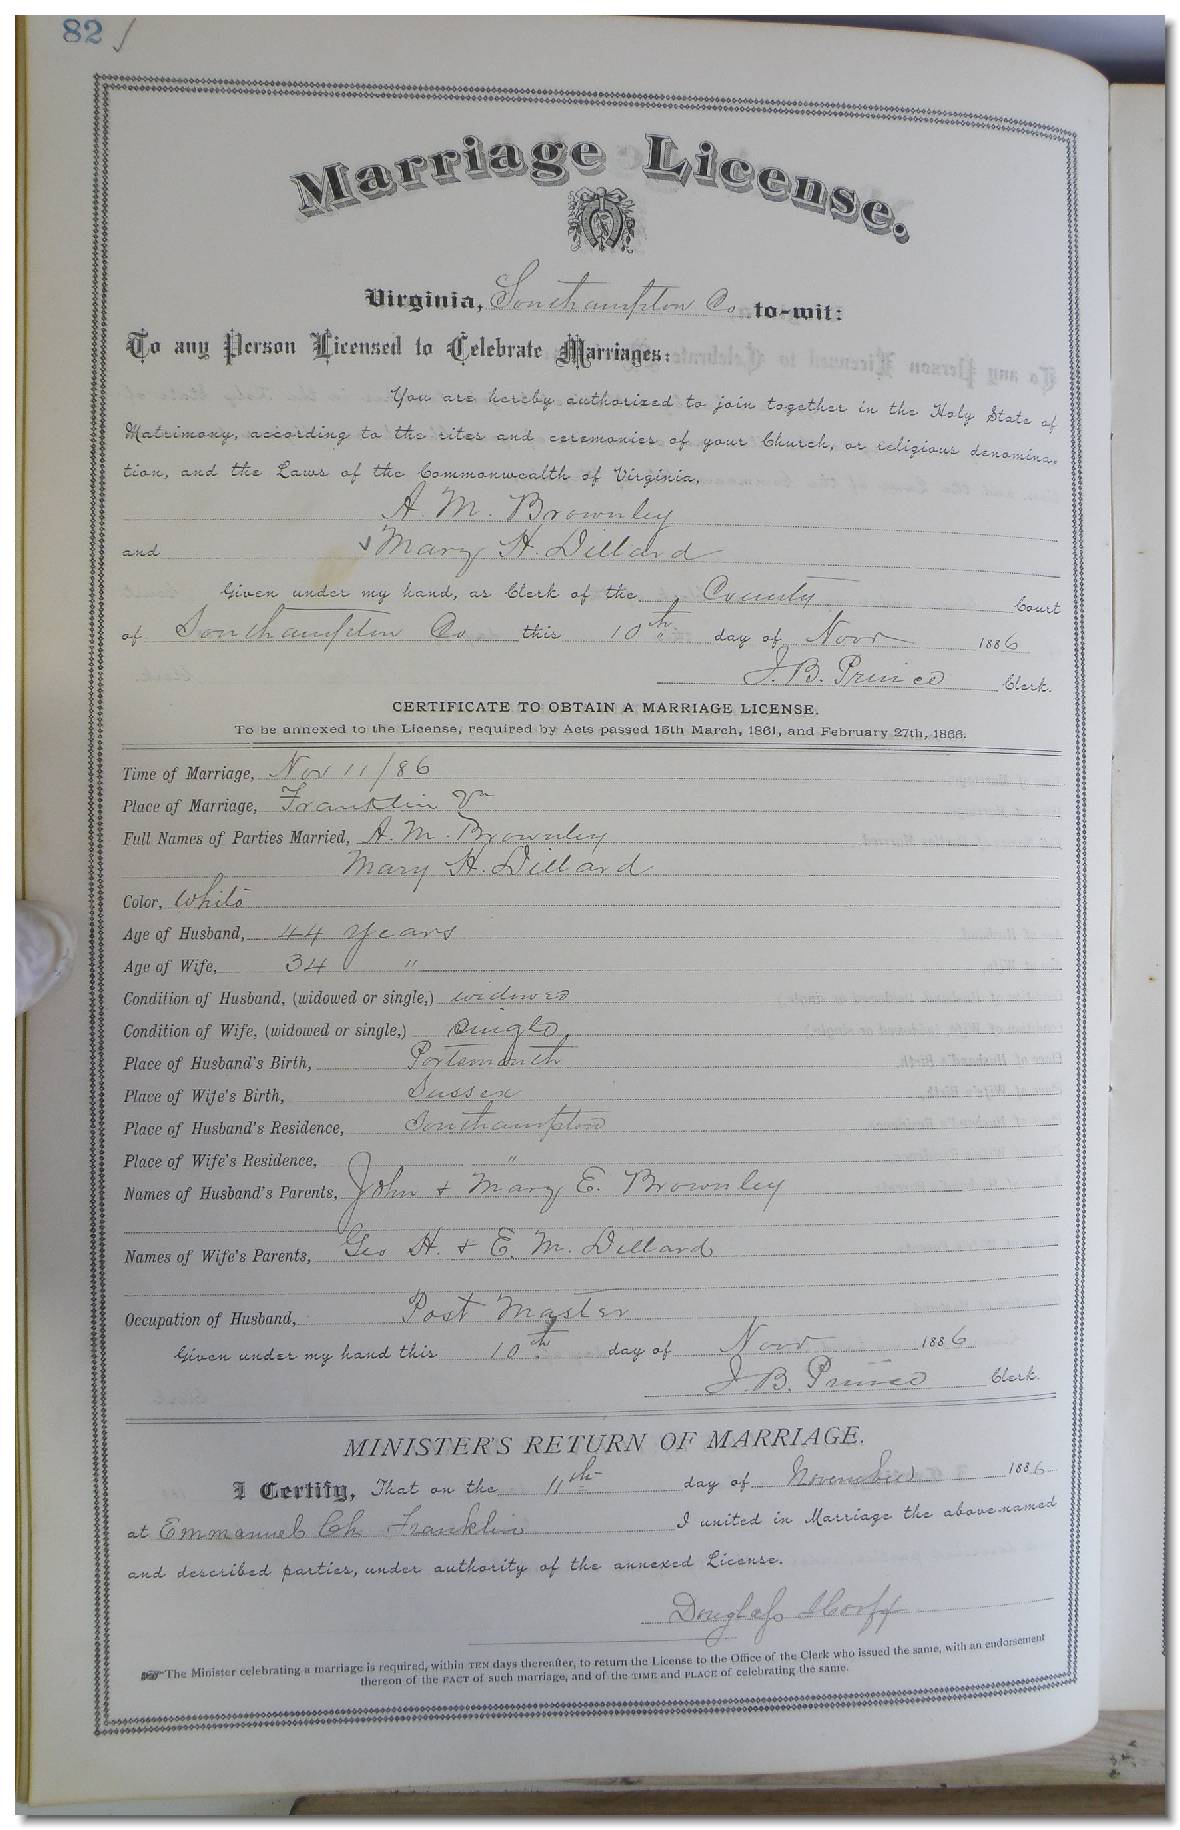 82
Marriage License.
Virginia, Southampton Co to-wit:
To any Person Licensed to Celebrate Marriages:
You are hereby authorized to join together in the Holy State of
Matrimony, according to the rites and ceremonies of your Church, or religious denomina-
tion, and the Laws of the Commonwealth of Virginia,
A. M. Brownley
and Mary H. Dillard
Given under my hand, as Clerk of the County Court
of Southampton Co this 10th day of Novr 1886
J. B. Prince Clerk.
CERTIFICATE TO OBTAIN A MARRIAGE LICENSE.
To be annexed to the License, required by Acts passed 15th March, 1861, and February 27th, 1866.
Time of Marriage, Nov 11/86
Place of Marriage, Franklin Va
Full Names of Parties Married, A. M. Brownley
Mary H. Dillard
Color, White
Age of Husband, 44 years
Age of Wife, 34 "
Condition of Husband, (widowed or single,) widowed
Condition of Wife, (widowed or single,) single
Place of Husband's Birth, Portsmouth
Place of Wife's Birth, Sussex
Place of Husband's Residence, Southampton
Place of Wife's Residence, "
Names of Husband's Parents, John + Mary E. Brownley
Names of Wife's Parents, Geo H. + E. M. Dillard
Occupation of Husband, Post Master
Given under my hand this 10th day of Novr 1886
J. B. Prince Clerk.
MINISTER'S RETURN OF MARRIAGE.
I Certify, That on the 11th day of November 1886
at Emmanuel Ch Franklin I united in Marriage the above-named
and described parties, under authority of the annexed License.
Douglass Hooff
The Minister celebrating a marriage is required, within TEN days thereafter, to return the License to the Office of the Clerk who issued the same, with an endorsement
thereon of the FACT of such marriage, and of the TIME and PLACE of celebrating the same.